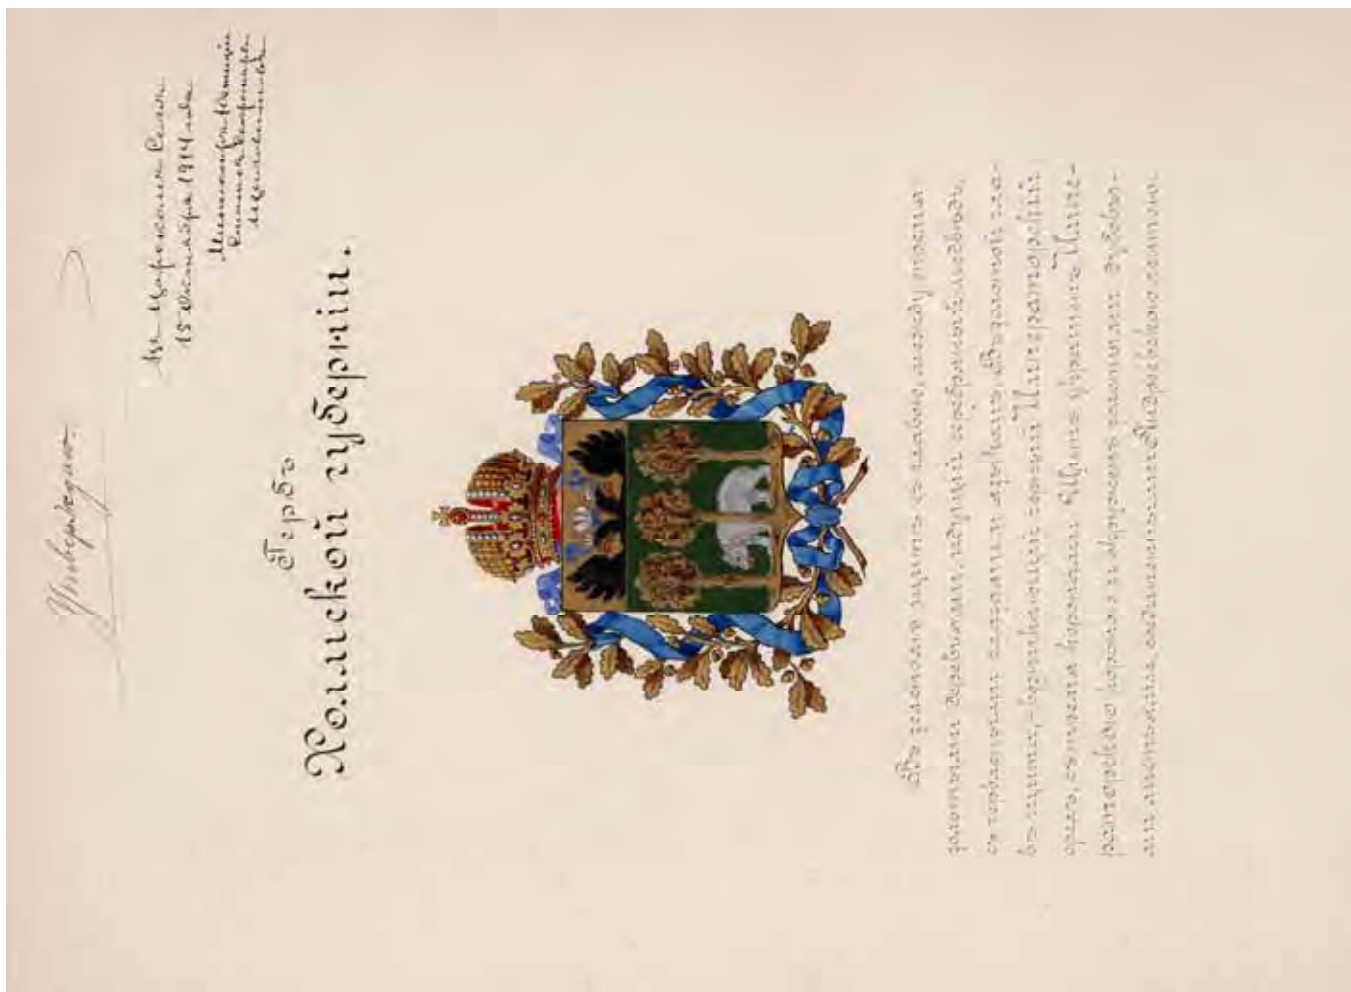 Утверждаю.
Въ Царскомъ Селѣ
15 Октября 1914 года
Министръ Юстиціи
Гербъ
Холмской губерніи.
Въ зеленомъ щитѣ съ главою, между тремя
золотыми деревьями, идущій серебряный медвѣдь,
съ червлеными глазами и языкомъ. Въ золотой гла-
вѣ щита, – возникающій черный Императорскій
орелъ, съ тремя коронами. Щитъ украшенъ Импе-
раторскою короною и окруженъ золотыми дубовы-
ми листьями, соединенными Андреевскою лентою.